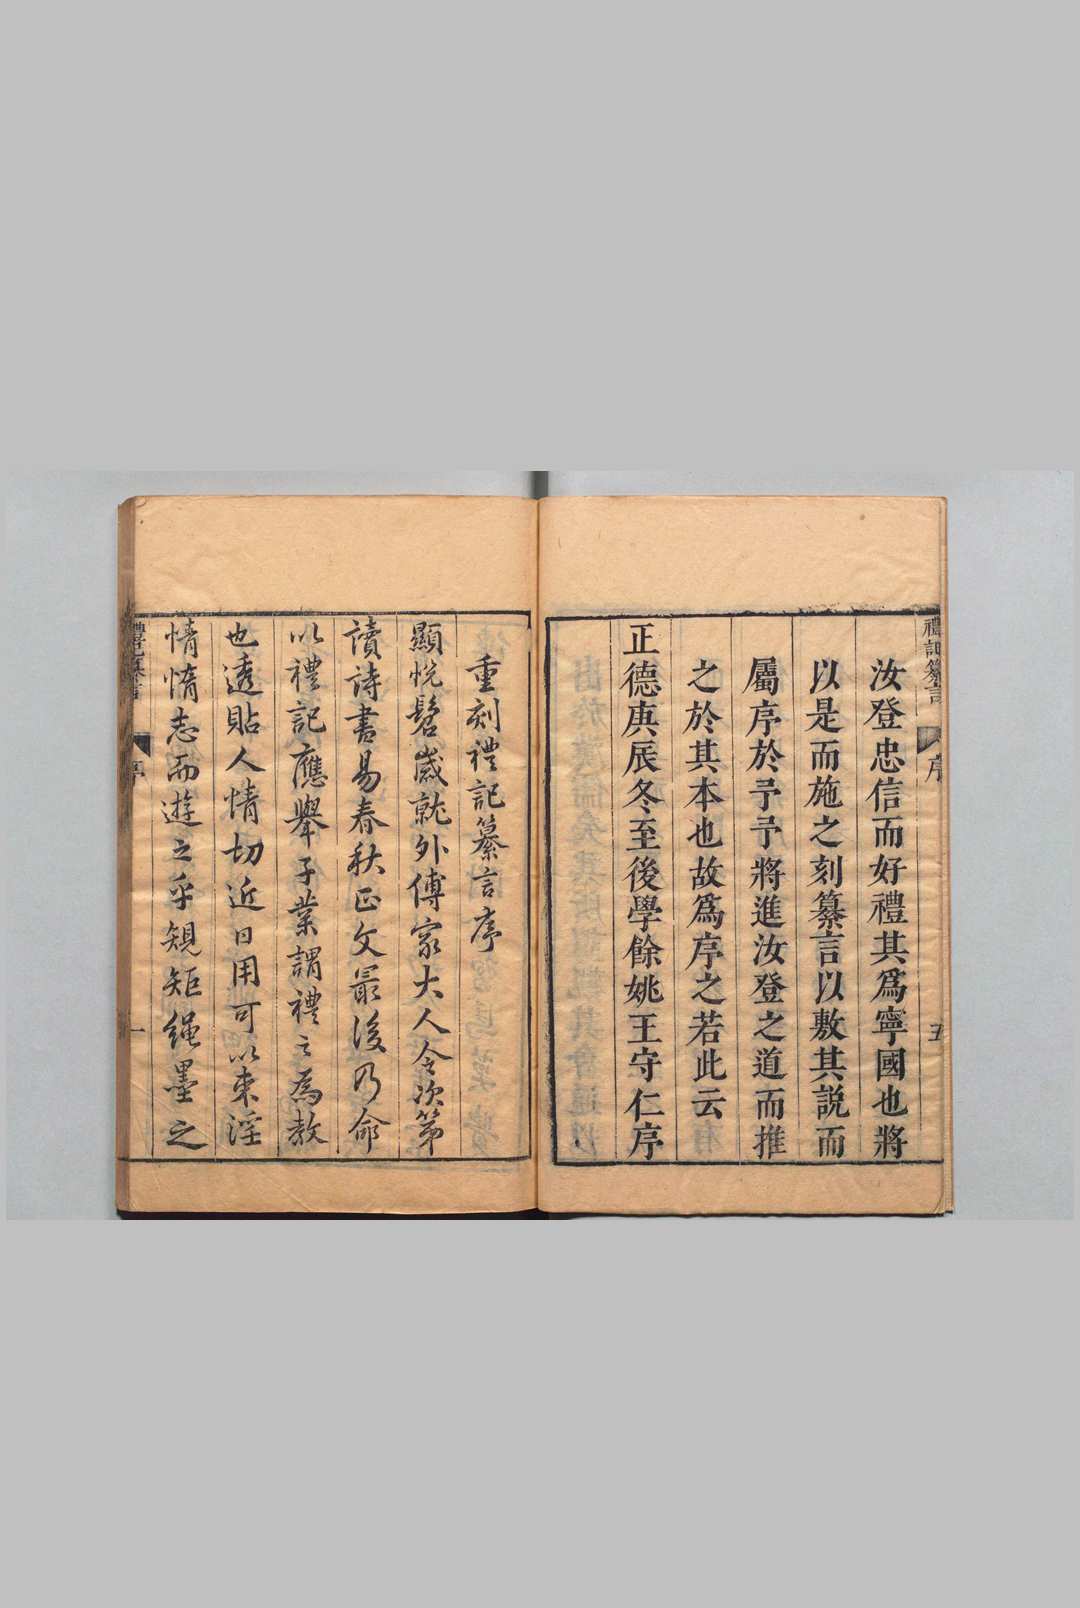 禮記纂言
序
五
汝登忠信而好禮其爲寧國也將
以是而施之刻纂言以敷其説而
屬序於予予將進汝登之道而推
之於其本也故爲序之若此云
正德庚辰冬至後學餘姚王守仁序
重刻禮記纂言序
顯悅髫歲就外傅家大人令次第
讀詩書易春秋正文最後乃命
以禮記應舉子業謂禮之爲教
也透貼人情切近日用可以束淫
情惰志而遊之乎規矩繩墨之
禮記纂言
序
一